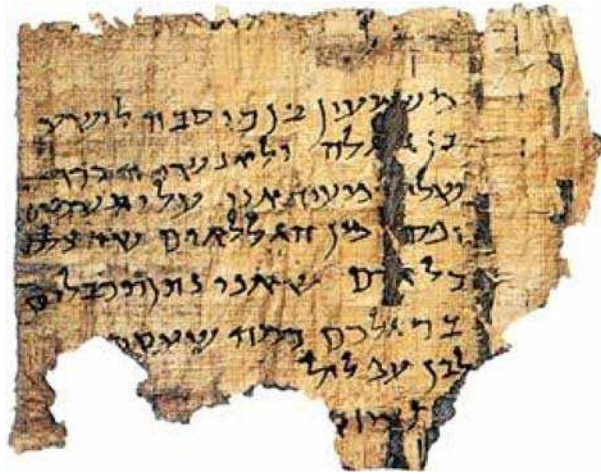 משמעון בן כוסבה לישע
בן גלגלה ולאנשי הכרך
שלום מעיד אני עלי תשמים
מן הגללאים שהצלכם
כל אדם שאני נתן תכבלים
ברגלכם כמה שעסת
לבן עפלול